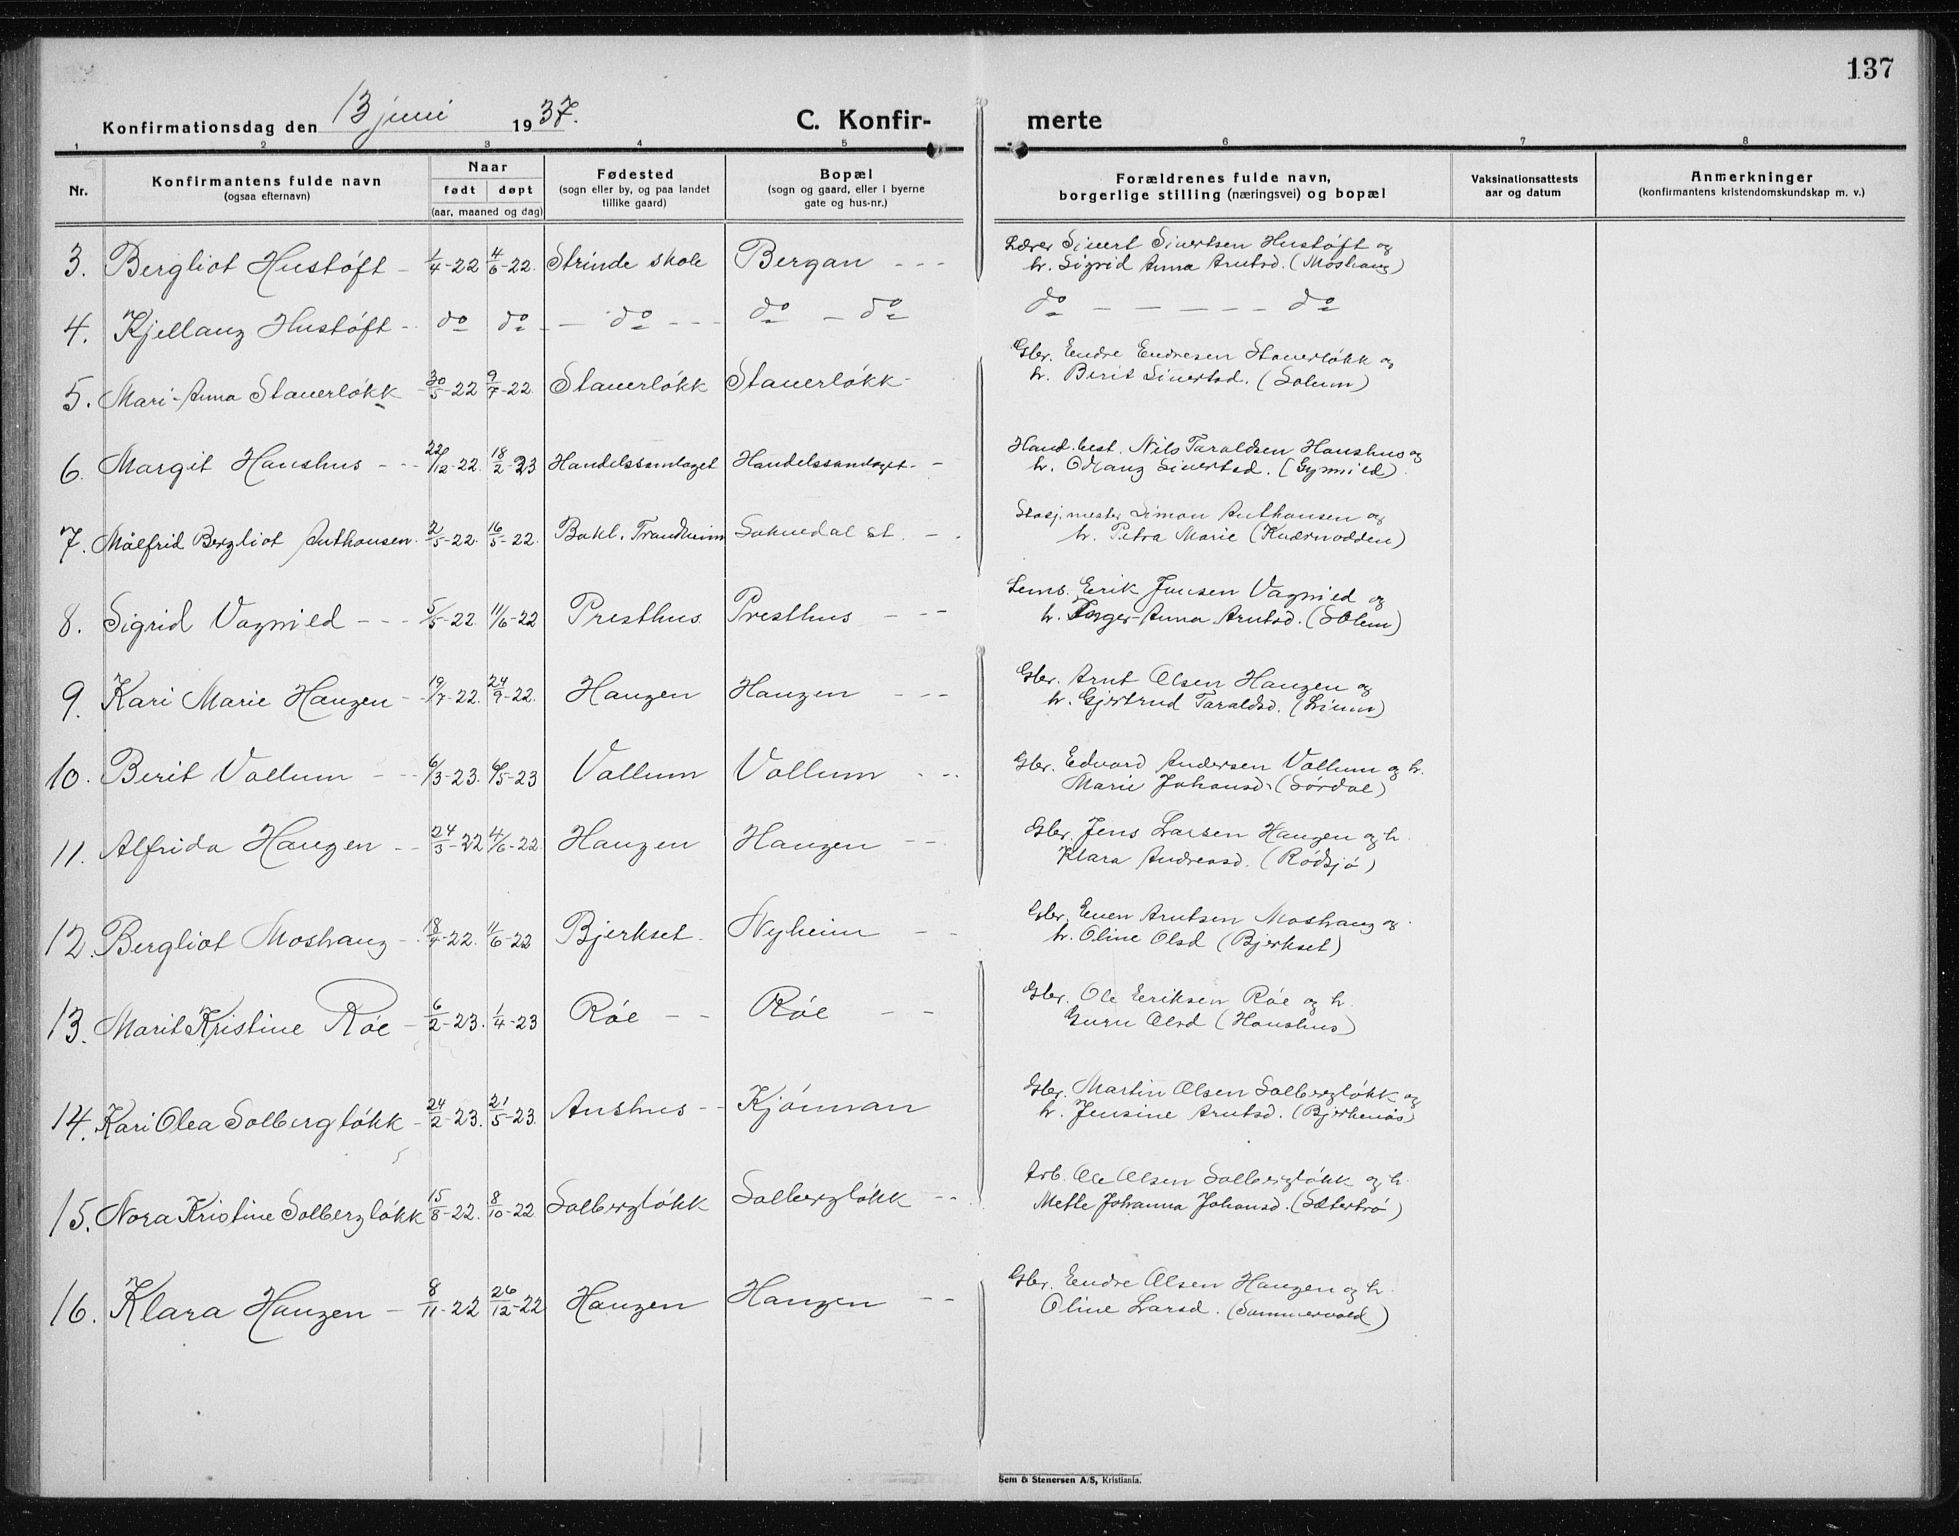 137
Konfirmationsdag den 13 juni 1937. C. Konfir- merte
1 2 3 4 5 6 7 8
Nr. Konfirmantens fulde navn (ogsaa efternavn) Naar født døpt (aar, maaned og dag) Fødested (sogn eller by, og paa landet tillike gaard) Bopæl (sogn og gaard, eller i byerne gate og hus-nr.) Forældrenes fulde navn, borgerlige stilling (næringsvei) og bopæl Vaksinationsattests aar og datum Anmerkninger (konfirmantens kristendomskundskap m. v.)
3. Bergliot Hustøft - 1/4-22 4/6-22. Strinde skole Bergan - - - Lærer Sivert Sivertsen Hustøft og
h. Sigrid Anna Arntsd. (Moshaug)
4. Kjellaug Hustøft - do do - - do - - - do - do do - - - - - do
5. Mari-Anna Stauerløkk - 30/5-22 9/7-22. Stauerløkk Stauerløkk - Gbr. Endre Endresen Stauerløkk og
h. Berit Sivertsd. (Solum)
6. Margit Haushus - - 22/12-22. 18/2-23 Handelssamlaget Handelssamlaget - - Hand.best. Nils Taraldsen Haushus og
h. Oddaug Sivertsd. (Gynnild)
7. Målfrid Bergliot Anthonsen. 2/5-22. 16/5-22. Bakl. Trondheim Soknedal st. - . Stasj.mester Simon Anthonsen og
h. Petra Marie (Kvernodden)
8. Sigrid Vagnild - - - 5/5-22. 11/6-22 Presthus Presthus - - - Erik Jensen Vagnild og
h. Inger-Anna Arntsd. (Solem)
9. Kari Marie Haugen - - 19/7-22. 24/9-22. Haugen Haugen - - - Gbr. Arnt Olsen Haugen og
h. Gjertrud Taraldsd. (Lium)
10. Berit Vollum - - - 6/3-23. 6/5-23 Vollum Vollum - - . Gbr. Edvard Andersen Vollum og h.
Marie Johansd. (Sørdal)
11. Alfrida Haugen - - 24/3-22 4/6-22. Haugen Haugen - - Gbr. Jens Larsen Haugen og h.
Klara Andreasd. (Rødsjø)
12. Bergliot Moshaug - . 18/4-22. 11/6-22 Bjerkset . Nyheim - - Gbr. Even Arntsen Moshaug og
h. Oline Olsd (Bjerkset)
13. Marit Kristine Røe - 6/2-23. 1/4-23 Røe - - Røe - - Gbr. Ole Eriksen Røe og h.
Guru Olsd (Haushus)
14. Kari Olea Solbergløkk - 24/2-23. 21/5-23. Aushus - - Kjønnan Gbr. Martin Olsen Solbergløkk og
h. Jensine Arntsd. (Bjerkenås)
15. Nora Kristine Solbergløkk 15/8-22. 8/10-22 Solbergløkk Solbergløkk - - Arb. Ole Olsen Solbergløkk og h.
Mette Johanna Johansd. (Sætertrø)
16. Klara Haugen - 8/11-22 26/12-22 Haugen Haugen - - Gbr. Endre Olsen Haugen og h.
Oline Larsd. (Sommervold)
Sem & Stenersen A/S, Kristiania.